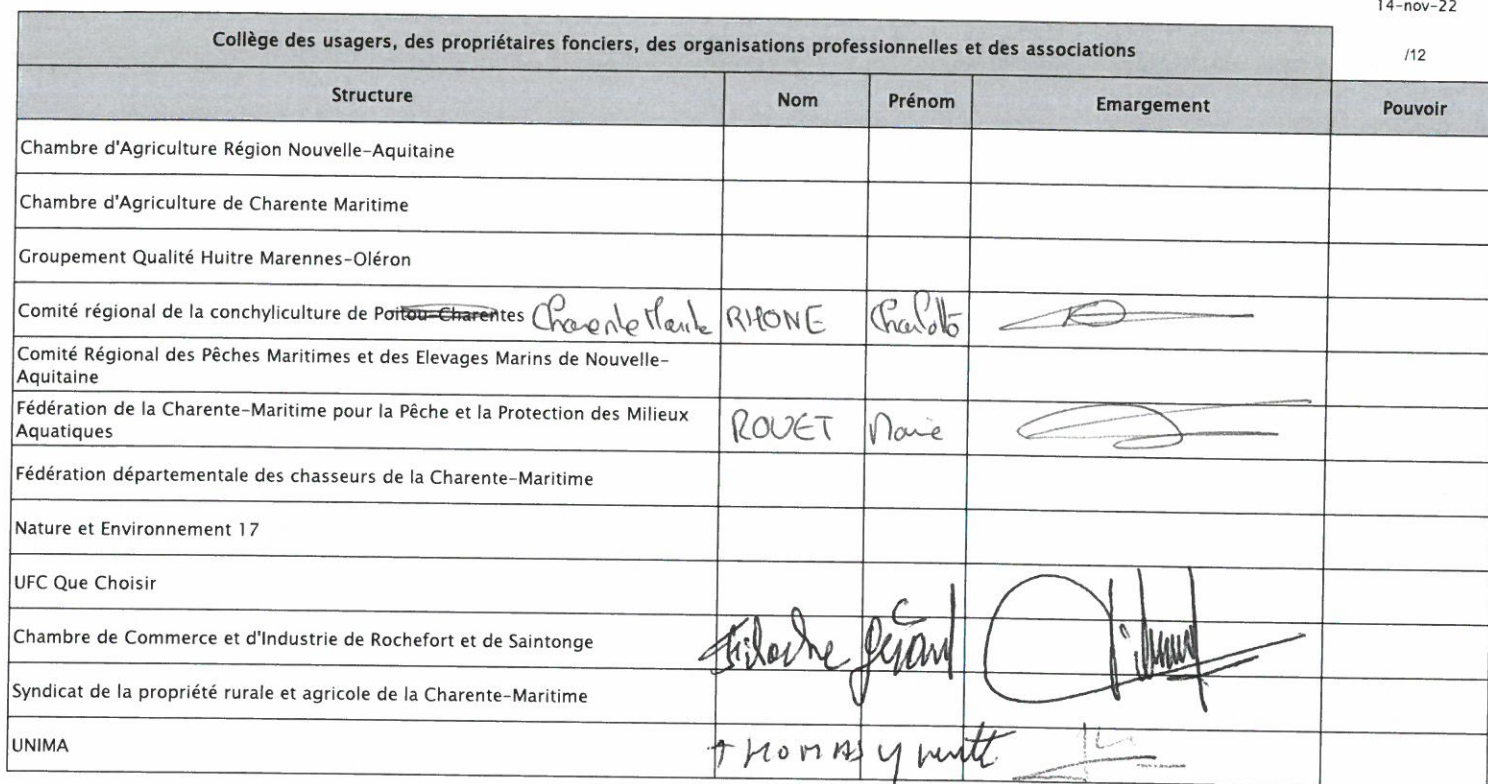 14-nov-22
Collège des usagers, des propriétaires fonciers, des organisations professionnelles et des associations
/12
Structure Nom Prénom Emargement Pouvoir
Chambre d'Agriculture Région Nouvelle-Aquitaine
Chambre d'Agriculture de Charente Maritime
Groupement Qualité Huitre Marennes-Oléron
Comité régional de la conchyliculture de Poitou-Charentes Charente Marite RHONE Charlotte
Comité Régional des Pêches Maritimes et des Elevages Marins de Nouvelle-
Aquitaine
Fédération de la Charente-Maritime pour la Pêche et la Protection des Milieux
Aquatiques ROUET Marie
Fédération départementale des chasseurs de la Charente-Maritime
Nature et Environnement 17
UFC Que Choisir
Chambre de Commerce et d'Industrie de Rochefort et de Saintonge
Syndicat de la propriété rurale et agricole de la Charente-Maritime
UNIMA THOMAS